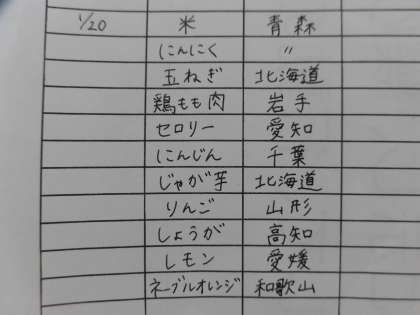 1/20 米 青森
にんにく 〃
玉ねぎ 北海道
鶏もも肉 岩手
セロリー 愛知
にんじん 千葉
じゃが芋 北海道
りんご 山形
しょうが 高知
レモン 愛媛
ネーブルオレンジ 和歌山